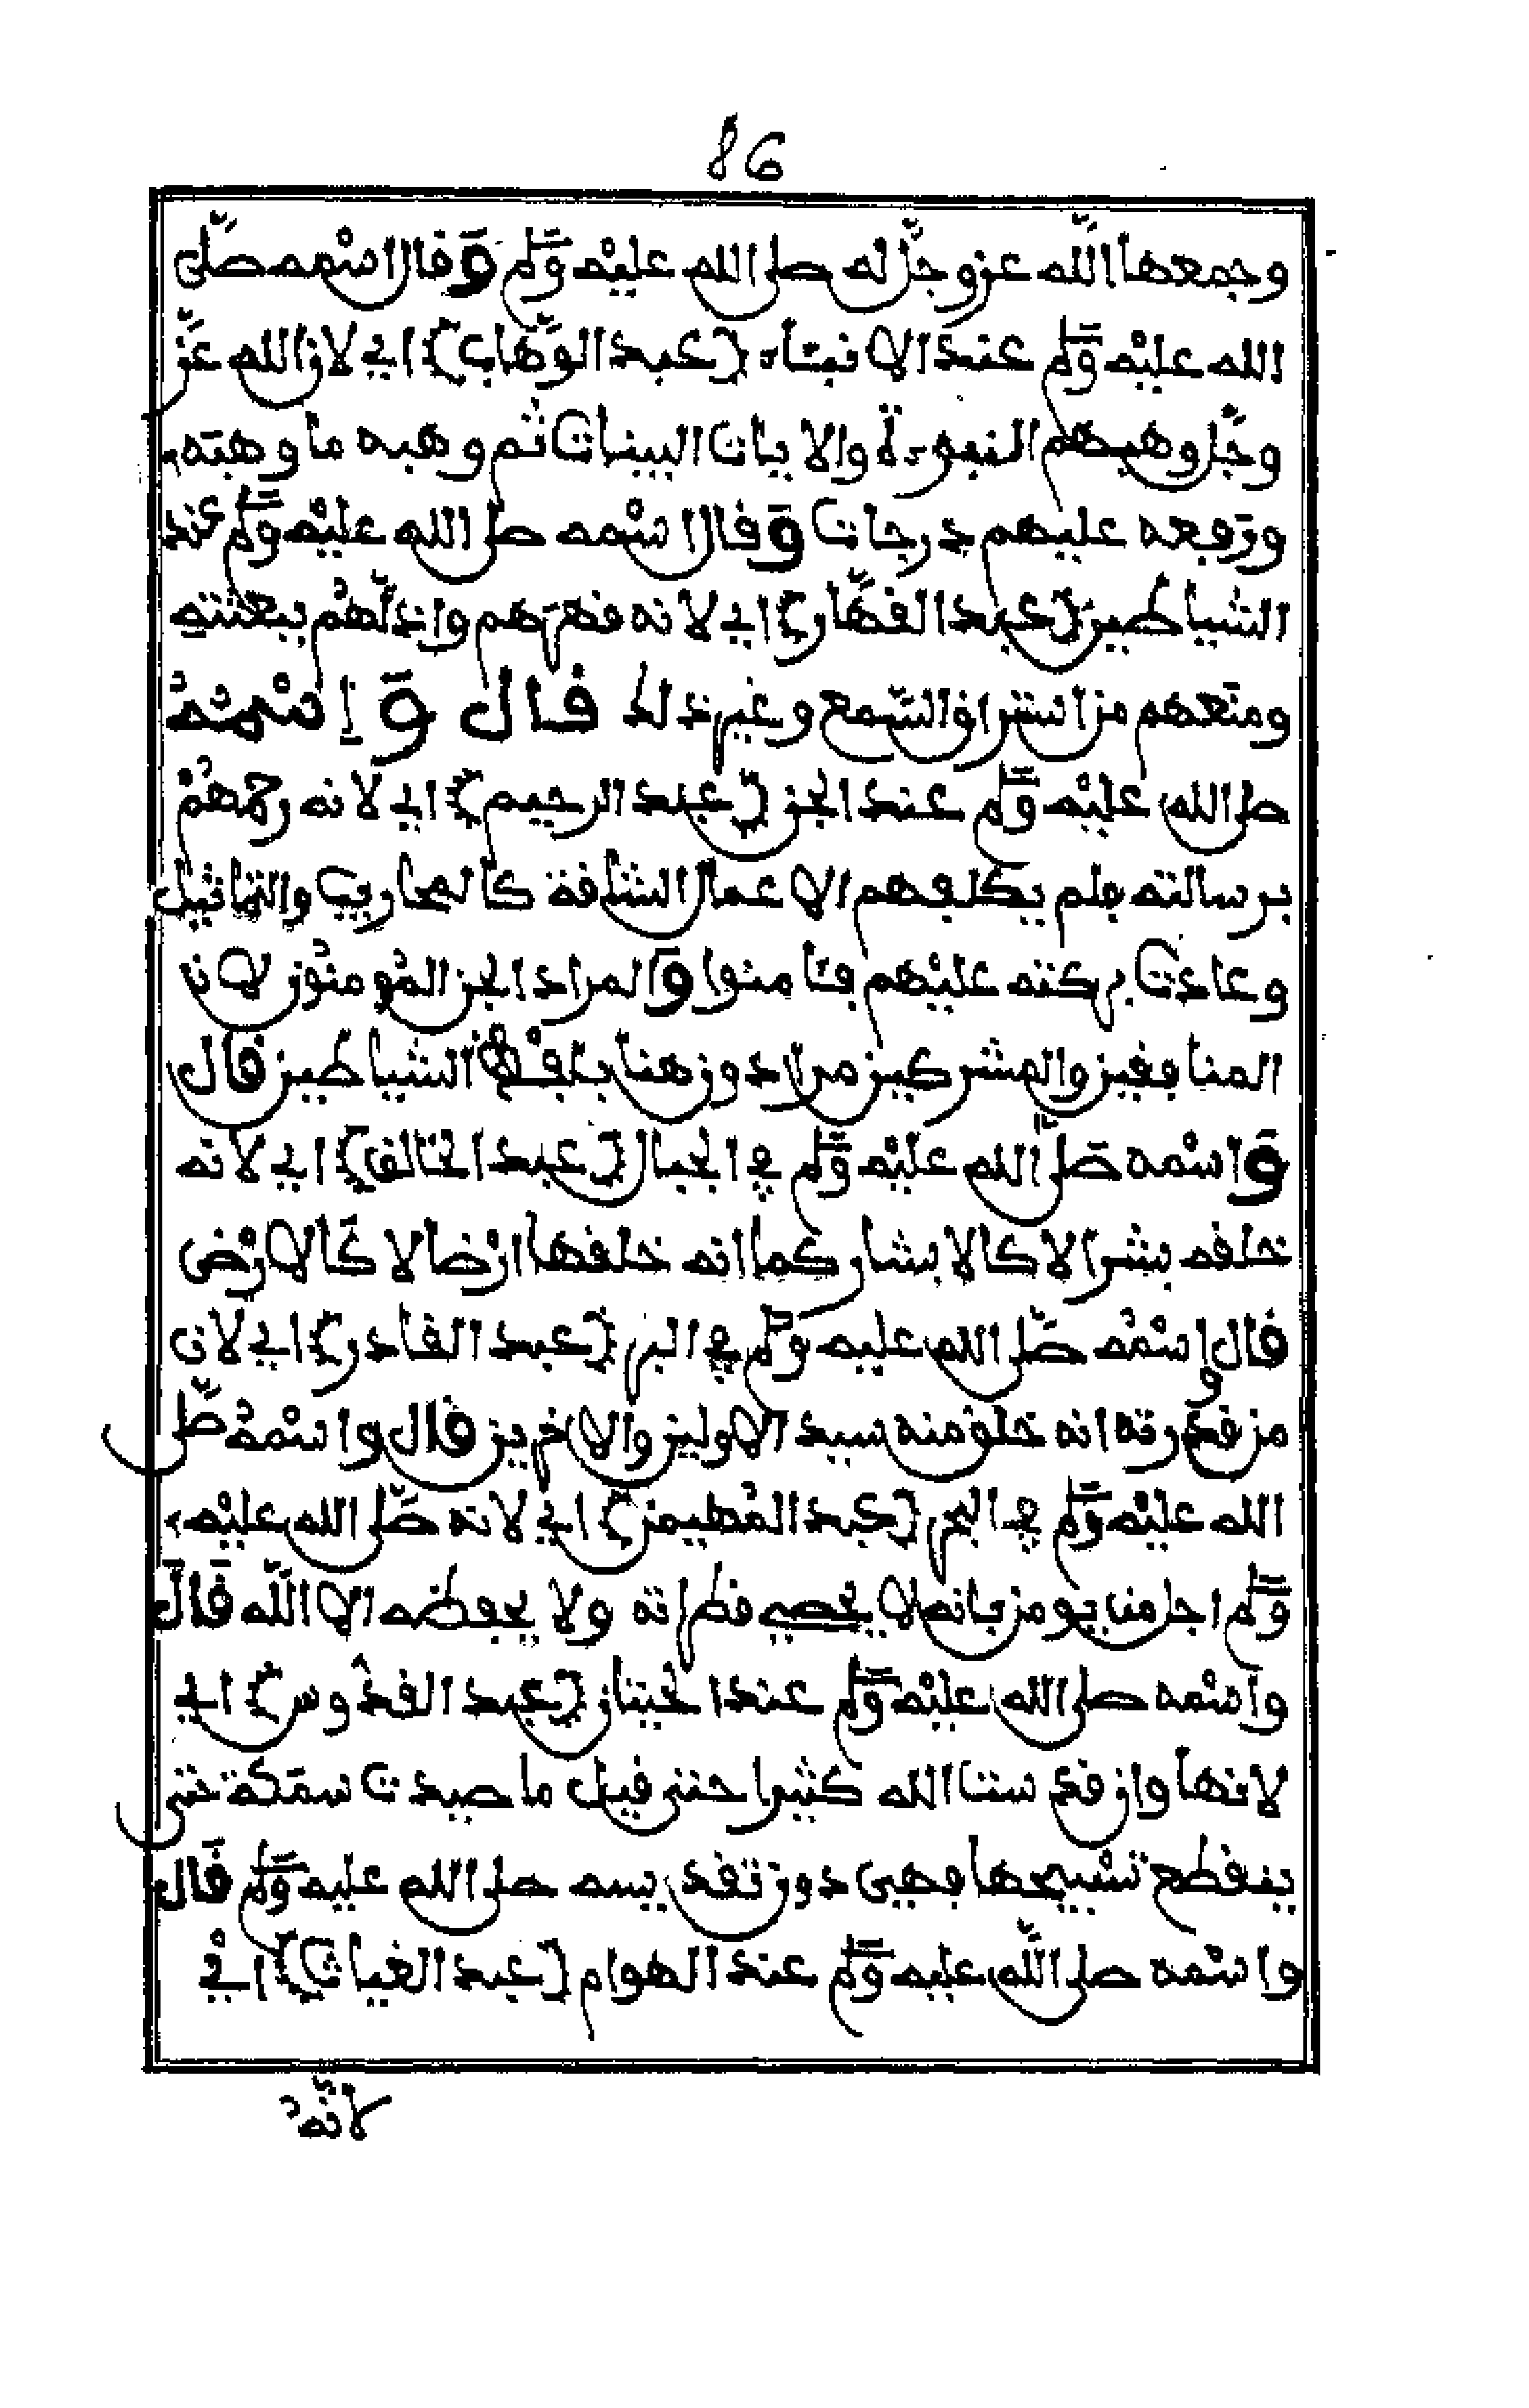 86
وجمعها الله عز وجل له صلى الله عليه وسلم وقال اسمه صلى
الله عليه وسلم عند الانبياء (عبد الوهاب) اي لان الله عز
وجل وهبهم النبوءة والايات البينات ثم وهبه ما وهبه
ورفعه عليهم درجات وقال اسمه صلى الله عليه وسلم عند
الشياطين (عبد القهار) اي لانه قهرهم واذلهم ببعثته
ومنعهم من استراق السمع وغير ذلك قال واسمه
صلى الله عليه وسلم عند الجن (عبد الرحيم) اي لانه رحمهم
برسالته فلم يكلفهم الاعمال الشاقة كالمحاريب والتماثيل
وعادت بركته عليهم فـامنوا والمراد الجن المومنون لان
المنافقين والمشركين مراد من هنا بلفظ الشياطين قال
واسمه صلى الله عليه وسلم في الجبال (عبد الخالق) اي لانه
خلقه بشرا لا كالابشار كما انه خلقها ارضا لا كالارض
قال واسمه صلى الله عليه وسلم في البر (عبد القادر) اي لان
من قدرته انه خلق منه سيد الاولين والاخرين قال واسمه صلى
الله عليه وسلم في البحر (عبد المهيمن) اي لانه صلى الله عليه
وسلم اجل من يومن بانه لا يحصي قطراته ولا يحفظه الا الله قال
واسمه صلى الله عليه وسلم عند الحيتان (عبد القدوس) اي
لانها وان قدستنا الله كثيرا حتى قيل ما صيدت سمكة حتى
ينقطع تسبيحها فهي دون تقديسه صلى الله عليه وسلم قال
واسمه صلى الله عليه وسلم عند الهوام (عبد الغياث) اي
لانه